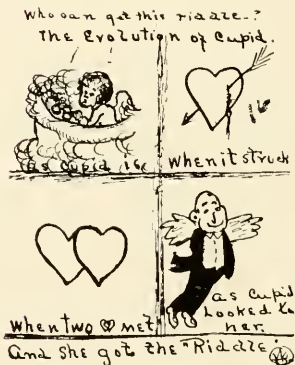 Who can get this riddle—?
The Evolution of Cupid.
as Cupid
When it struck
when two met
as Cupid
looked to
her.
And she got the "Riddle"